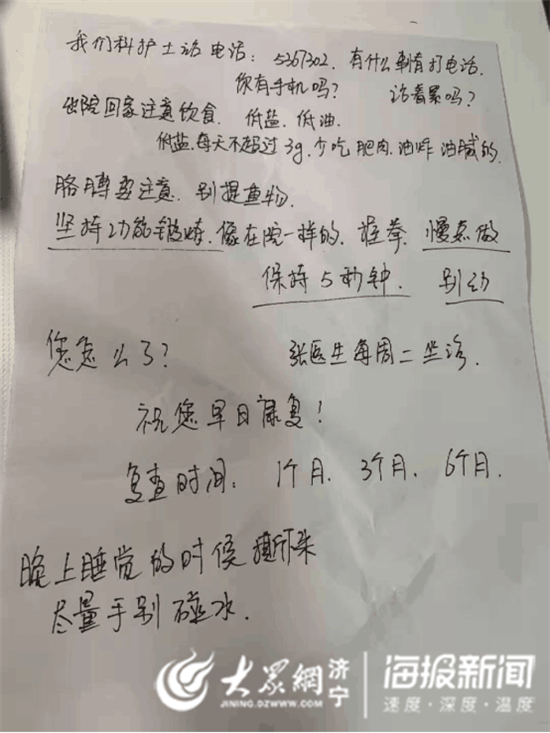 我们科护士站电话：5367302. 有什么事有打电话.
你有手机吗？ 活着累吗？
出院回家注意饮食. 低盐. 低油.
低盐.每天不超过3g.少吃肥肉.油炸油腻的.
胳膊要注意. 别提重物.
坚持功能锻炼.像在院一样的. 握拳. 慢点做
保持5秒钟. 别动
您怎么了？ 张医生每周二坐诊.
祝您早日康复！
复查时间：1个月. 3个月. 6个月.
晚上睡觉的时候 撕下来
尽量手别碰水.
大众网·济宁 海报新闻
JINING.DZWWW.COM 速度·深度·温度